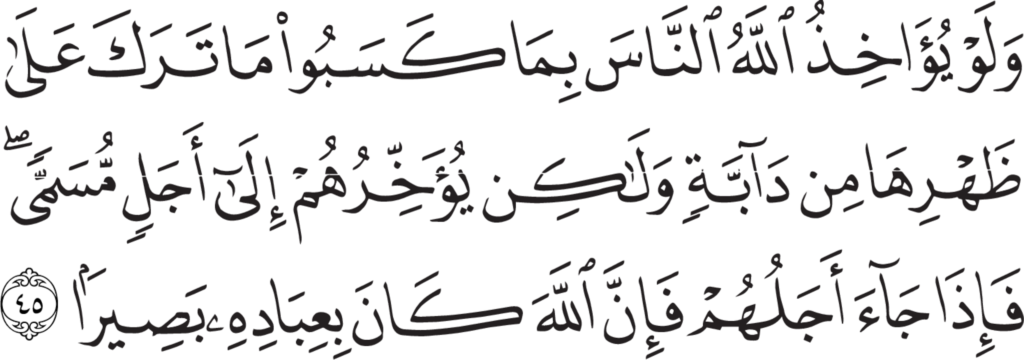 وَلَوۡ يُؤَاخِذُ ٱللَّهُ ٱلنَّاسَ بِمَا كَسَبُواْ مَا تَرَكَ عَلَىٰ
ظَهۡرِهَا مِن دَآبَّةٖ وَلَٰكِن يُؤَخِّرُهُمۡ إِلَىٰٓ أَجَلٖ مُّسَمّٗىۖ
فَإِذَا جَآءَ أَجَلُهُمۡ فَإِنَّ ٱللَّهَ كَانَ بِعِبَادِهِۦ بَصِيرَۢا ٤٥